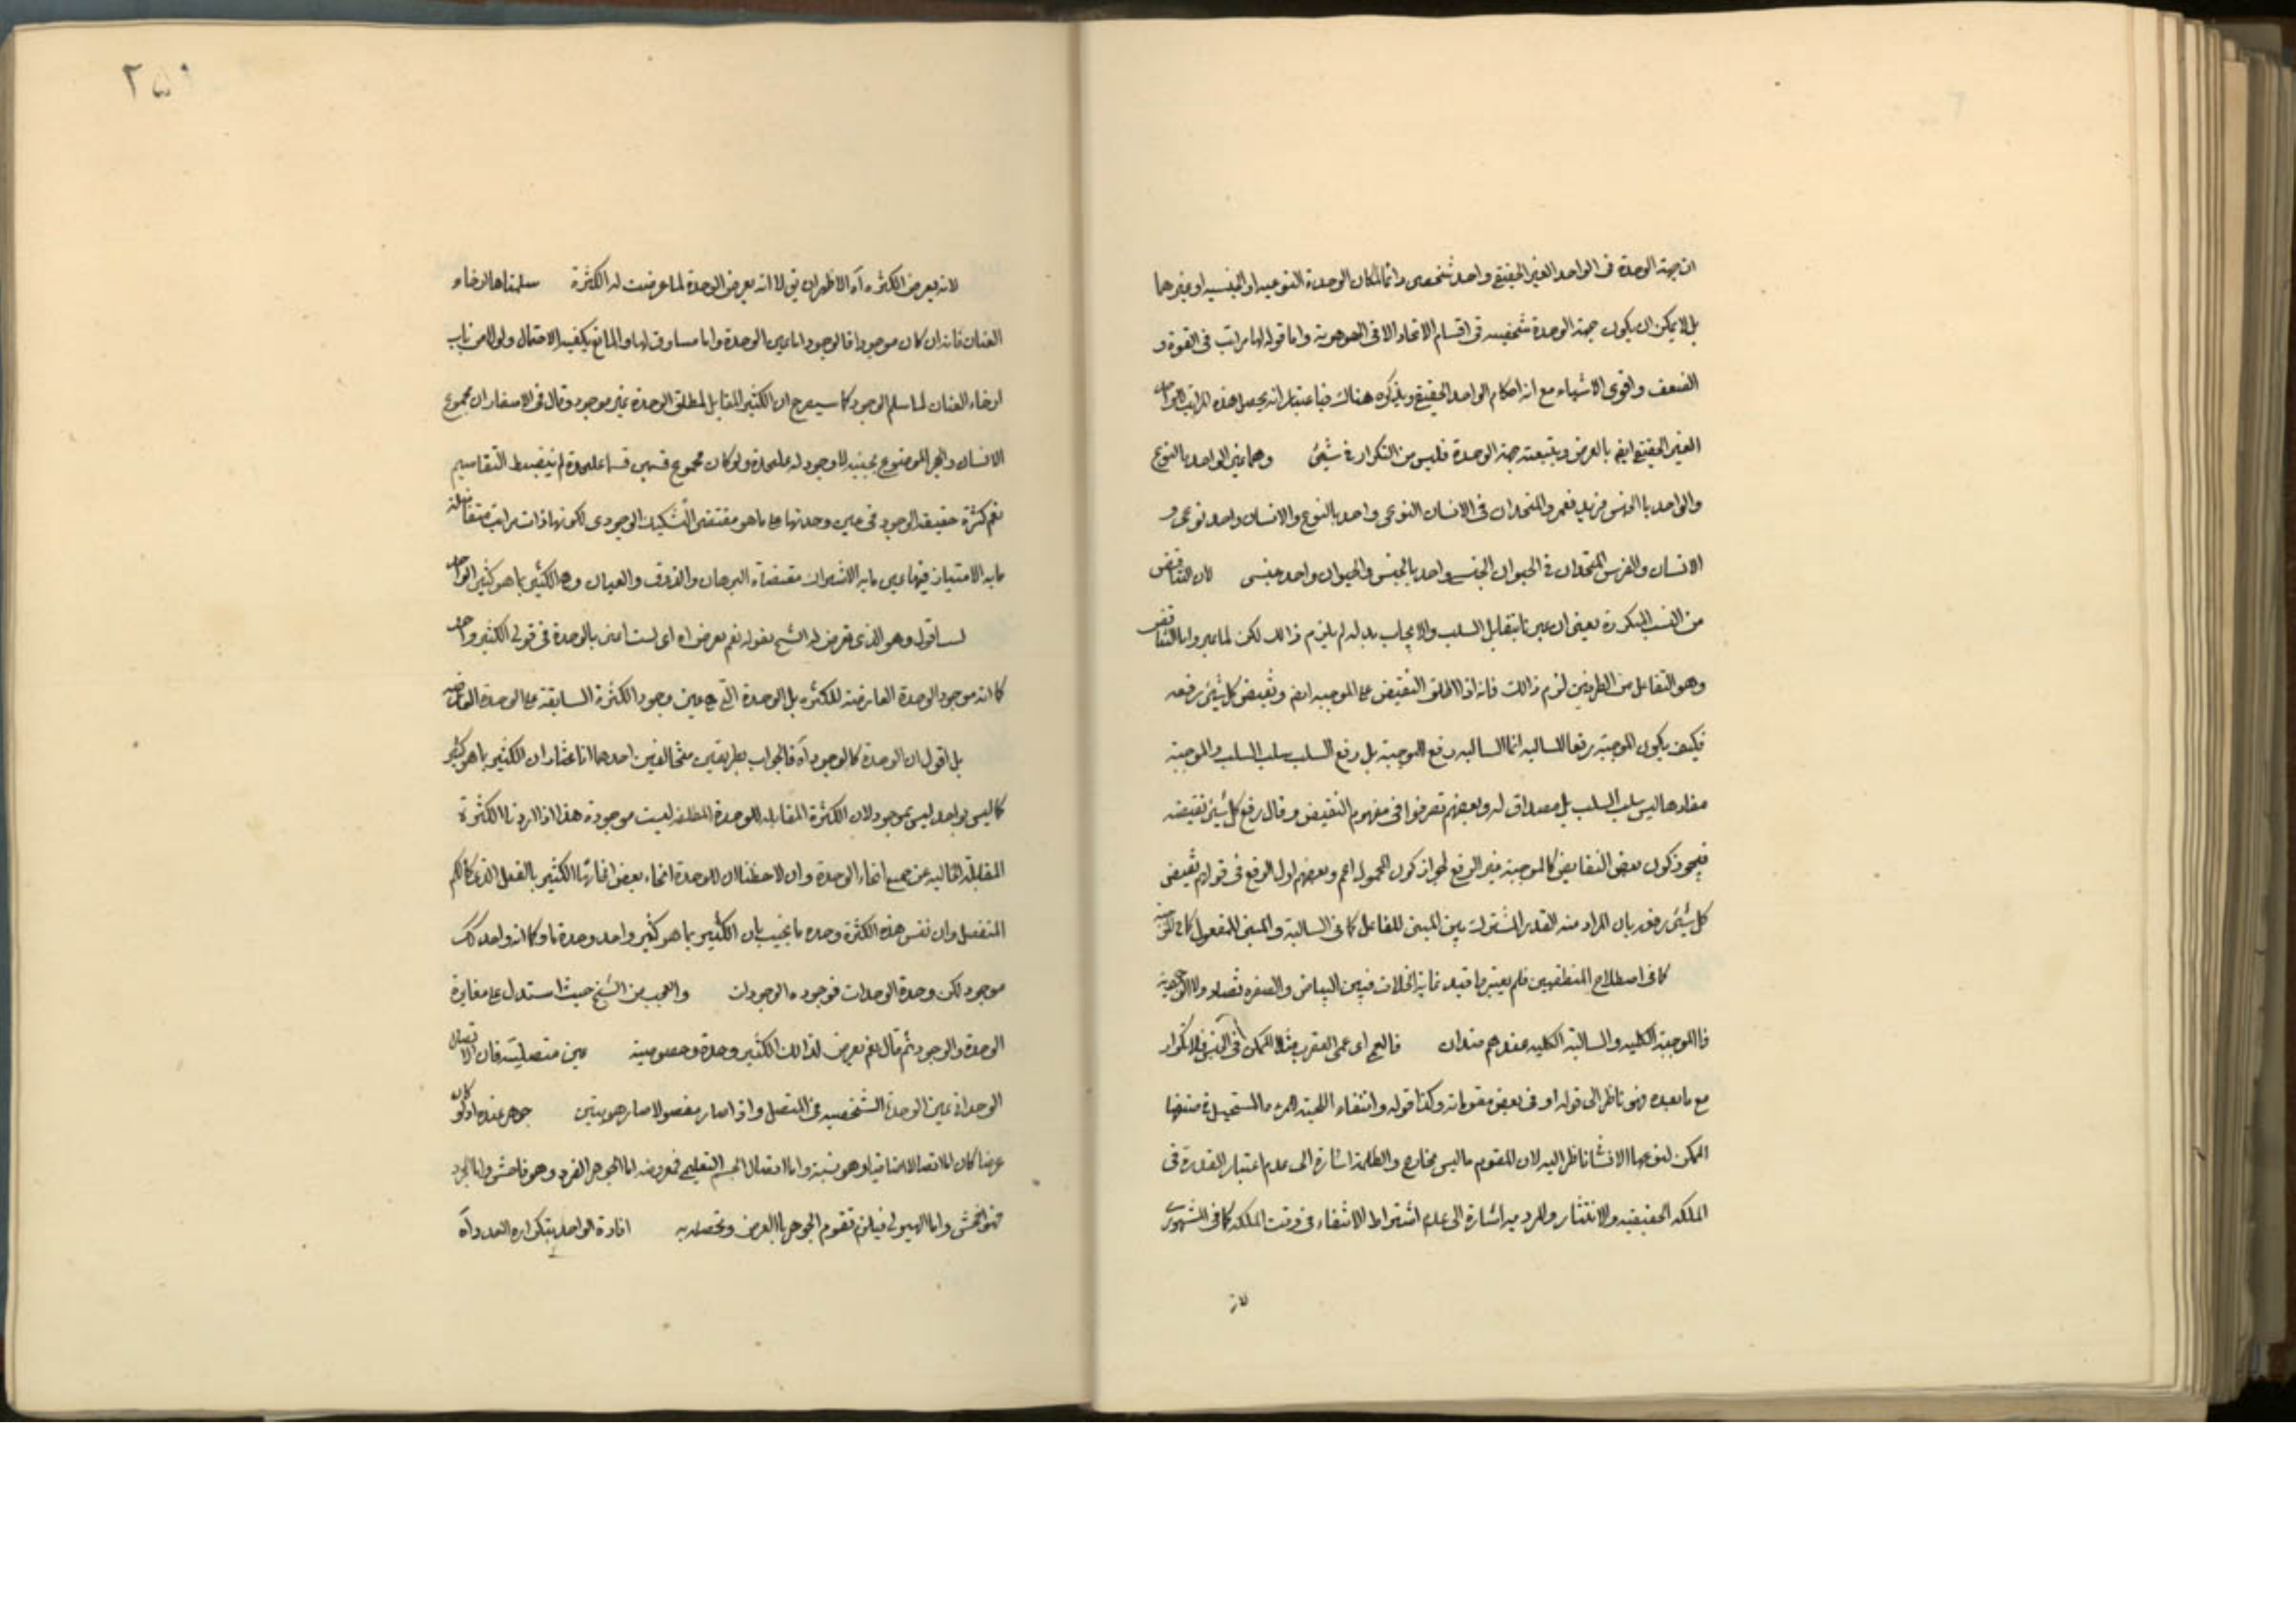 ان جهة الوحدة فى الواحد الغير الحقيقى واحد شخصى وانما كان الوحدة النوعيه او الجنسيه او غيرهما
بل لا يمكن ان يكون جهة الوحدة شخصيه فى اقسام الاتحاد الا فى الهوهوية واما قوله لها مراتب فى القوة و
الضعف واقوى الاشياء مع انه احكام الواحد الحقيقى ويذكره هناك فباعتبار انه يحصل هذه المراتب الواحد
الغير الحقيقى ايض بالعرض وبتبعية جهة الوحدة فليس من التكرار فى شيئ وهما غير الواحد بالنوع
والواحد بالجنس فزيد وعمرو المتحدان فى الانسان النوعى واحد بالنوع والانسان واحد نوعى و
الانسان والفرس المتحدان فى الحيوان الجنسى واحد بالجنس والحيوان واحد جنسى لان التناقض
من النسب المتكررة يعنى ان عبرنا بتقابل السلب والايجاب بدله لم يلزم ذالك لكن لما عبروا بالتناقض
وهو التفاعل من الطرفين لزم ذالك فانه اذا اطلق النقيض على الموجبه ايض ونقيض كل شيئ رفعه
فكيف يكون الموجبة رفعا للسالبه انما السالبه رفع الموجبة بل رفع السلب سلب السلب والموجبة
مفادها ليس سلب السلب بل مصداق له وبعضهم تصرفوا فى مفهوم النقيض وقال رفع كل شيئ نقيضه
فيجوز كون بعض النقايض كالموجبة غير الرفع لجواز كون المحمول اعم وبعضهم اول الرفع فى قولهم نقيض
كل شيئ رفعه بان المراد منه القدر المشترك بين المبنى للفاعل كما فى السالبة والمبنى للمفعول كما فى الموجبة
كما فى اصطلاح المنطقيين فلم يعتبروا قيد غاية الخلاف فبين البياض والصفره تضاد ولا الوجودية
فالموجبة الكليه والسالبة الكليه عندهم ضدان فالعمى اى عمى العقرب مثلا الممكن فى الجنس فلا تكرار
مع ما بعده فهو ناظر الى قوله او فى بعض مقوماته وكذا قوله وانتفاء اللحية للمرء ما المستحيل فى صنفها
الممكن لنوعها الانشا ناظر اليه لان المقوم ما ليس بخارج والظلمة اشارة الى عدم اعتبار القدرة فى
الملكه الحقيقيه والانتثار والمرديه اشارة الى عدم اشتراط الانتفاء فى وقت الملكه كما فى المشهورى
لانه
٢٥٠
لانه يعرض الكثره آه الاظهر ان يق لا انه يعرض الوحدة لما عرضت له الكثرة سلمناها ارخاء
العنان فانه ان كان موجودا فالوجود اما عين الوحدة واما مساوق لها والمانع يكفيه الاحتمال ولولا من باب
ارخاء العنان لما سلم الوجود كما سيصرح ان الكثير المقابل لمطلق الوحدة غير موجود وقال فى الاسفار ان مجموع
الانسان والحجر الموضوع بجنبه لا وجود له عليحدة ولو كان مجموع قسمين قسما عليحدة لم ينضبط التقاسيم
نعم كثرة حقيقة الوجود فى عين وحدتها على ما هو مقتضى التشكيك الوجودى لكونها ذات مراتب متفاضلة
ما به الامتياز فيها عين ما به الاشتراك مقتضاه البرهان والذوق والعيان وهو الكثير بما هو كثير الواحد
لسا قوله وهو الذى تعرض له الشيخ بقوله نعم يعرض اه اى لست اعنى بالوحدة فى قولى الكثير واحد
كما انه موجود الوحدة العارضة للكثره بل الوحدة التى هى عين وجود الكثرة السابقة على الوحدة العارضه
بل اقول ان الوحدة كالوجود آه فالجواب بطريقين متخالفين احدهما انا نختار ان الكثير بما هو كثير
كما ليس بواحد ليس بموجود لان الكثرة المقابله للوحدة المطلقه ليست موجودة هذا اذا اردنا الكثرة
المقابلة الخاليه عن جميع انحاء الوحدة وان لاحظنا ان للوحدة انحاء بعض انحائها الكثير بالفعل الذى كالكم
المنفصل وان نفس هذه الكثرة وحدة ما نجيب بان الكثير بما هو كثير واحد وحدة ما وكما انه واحد كك
موجود لكن وحدة الوحدات فوجوده الوجودات والعجب من الشيخ حيث استدل على مغايرة
الوحدة والوجود ثم قال نعم يعرض لذالك الكثير وحدة وخصوصية عين متصليته فان الاتصال
الوحدانى عين الوحدة الشخصيه فى المتصل واذا صار مفصولا صار هويتين جوهر عنده اذ لو كان
عرضا كان اما الاتصال الاضافى او هو نسبة واما اتصال الجسم التعليمى فمعروضه اما الجوهر الفرد وهو فاحش واما المجرد
فهو افحش واما الهيولى فيلزم تقوم الجوهر بالعرض وتحصله به افادة الواحد بتكراره العدد آه